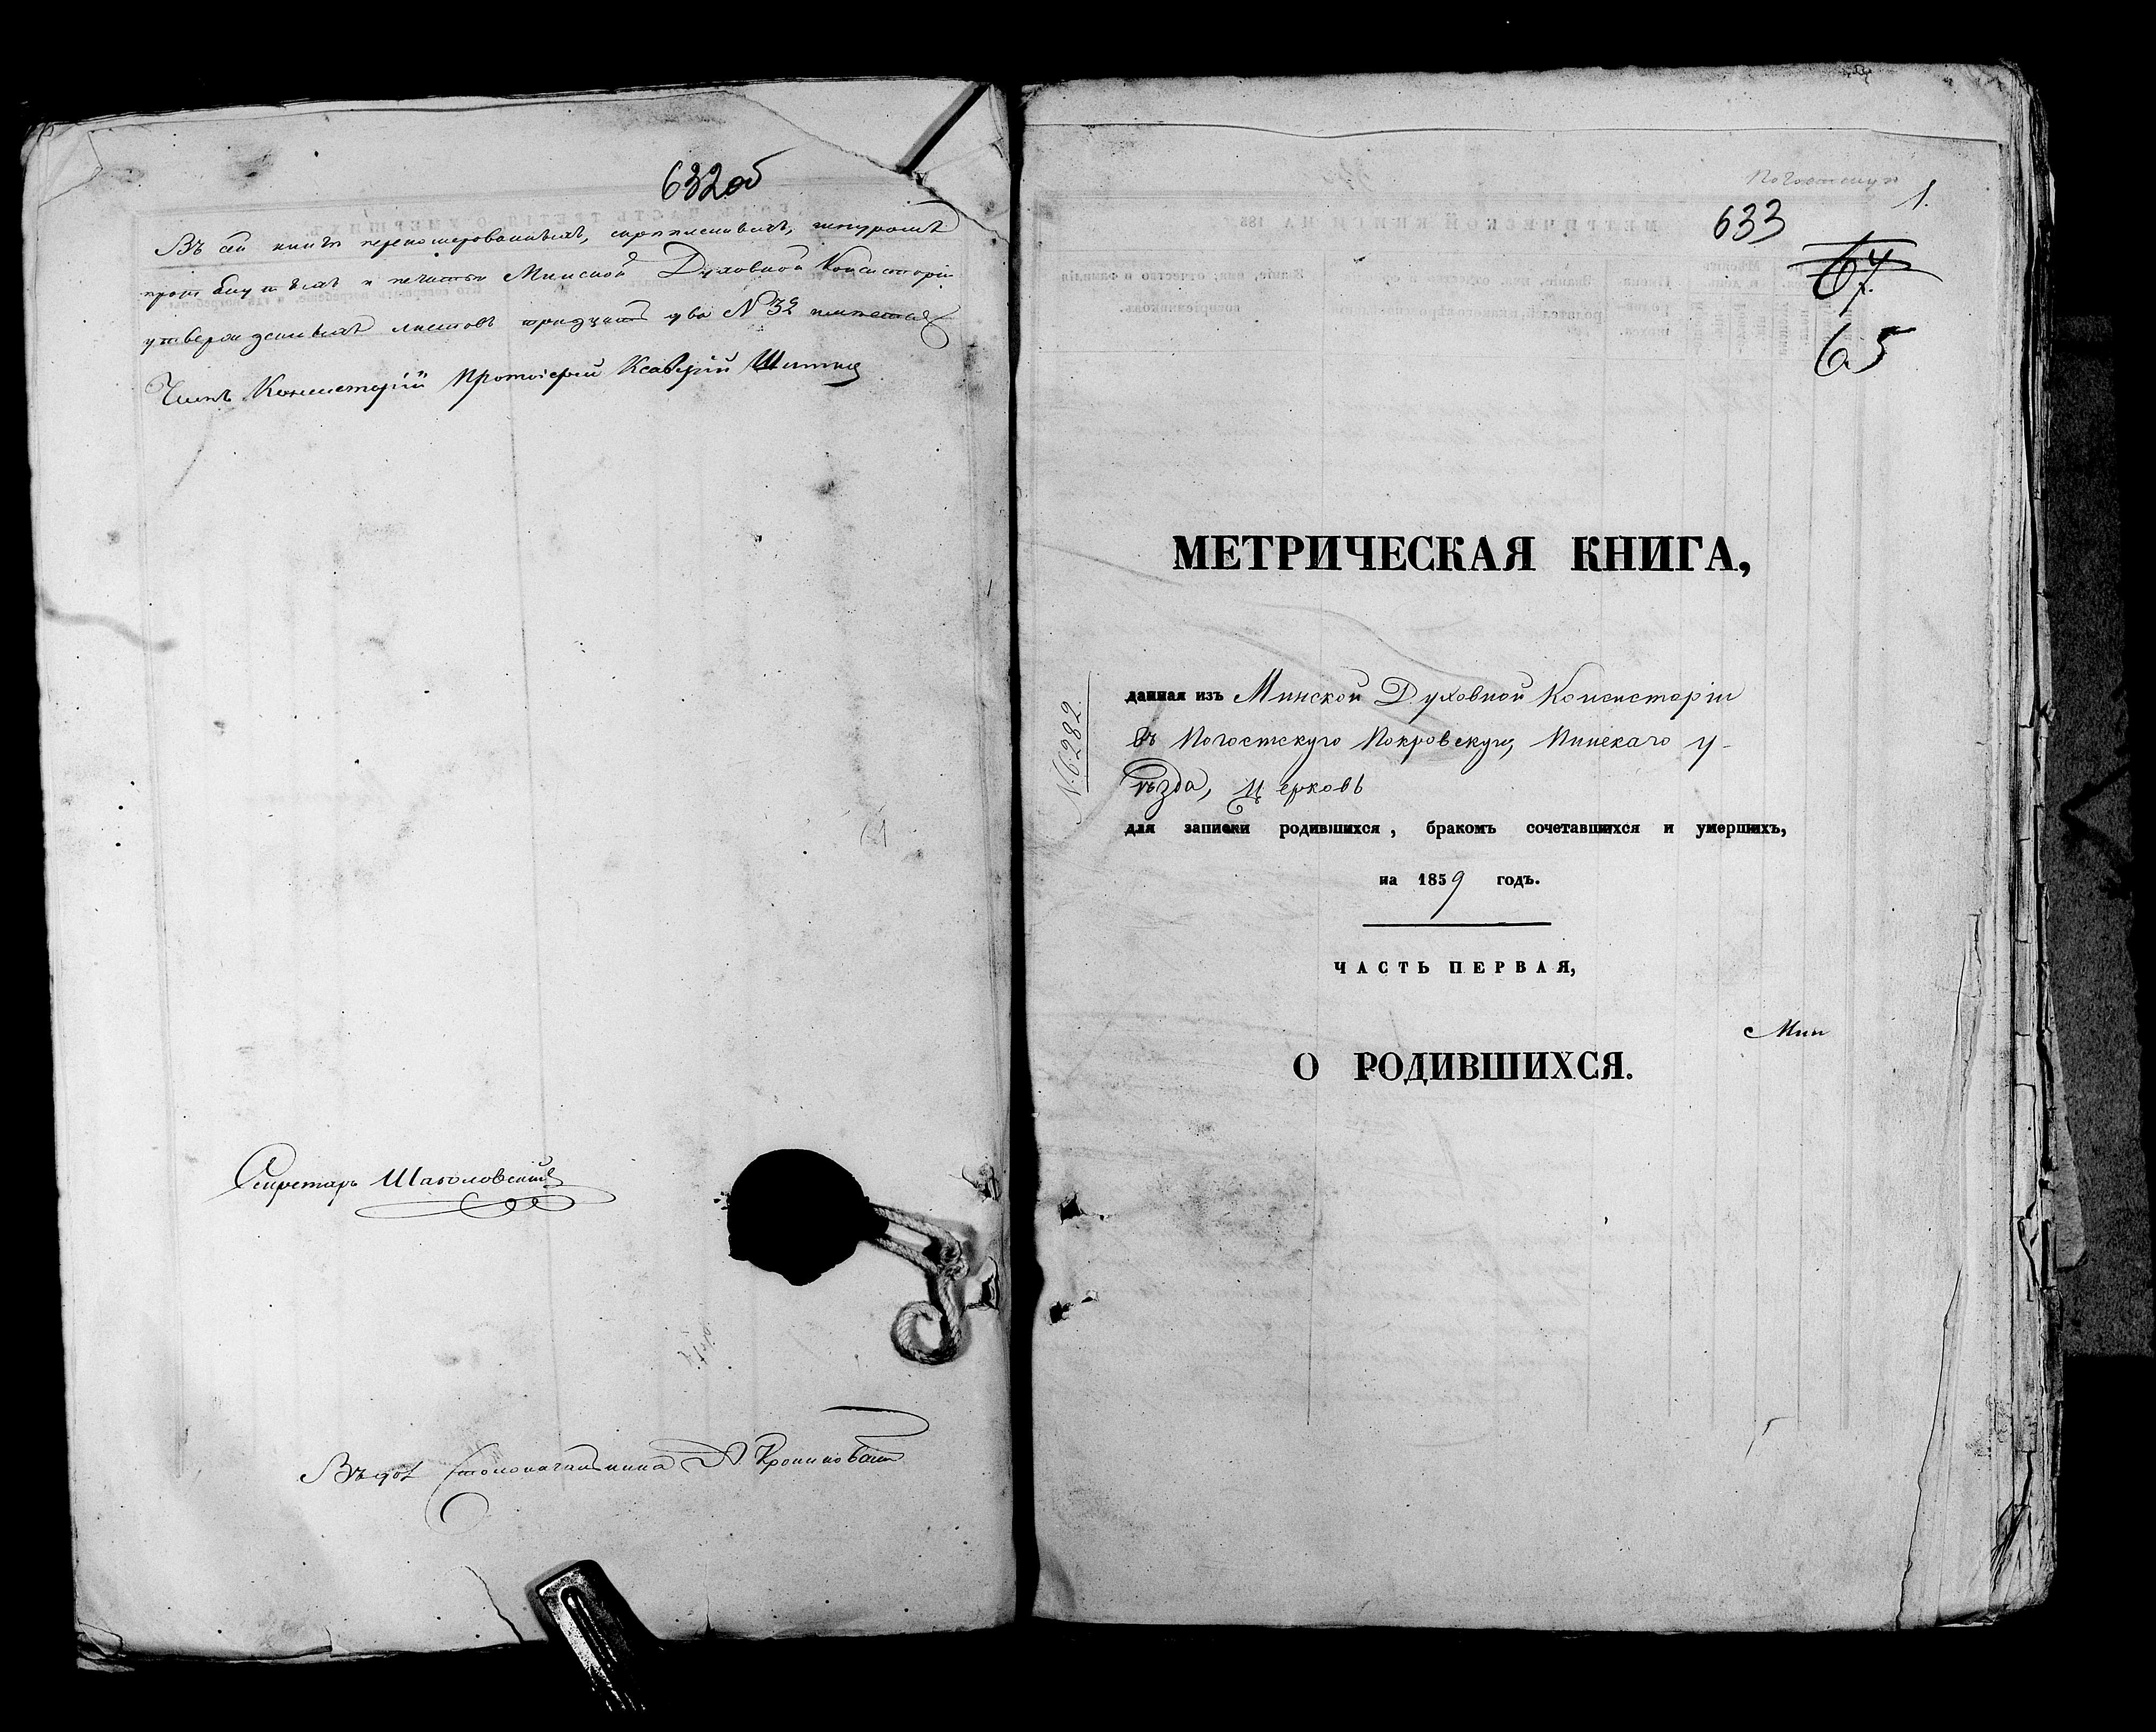 632об
Въ сей книгѣ перенумерованныхъ, скрѣпленныхъ, шнуромъ
и печатью Минской Духовной Консисторіи
утвержденныхъ листовъ тридцать два № 32 имѣется
Членъ Консисторіи Протоіерей Ксаверій
Секретарь
Въ дол. Столоначальника А.
Погостскую
1.
633
64
65
МЕТРИЧЕСКАЯ КНИГА,
№ 6.282
данная изъ Минской Духовной Консисторіи
въ Погостскую Покровскую, Пинскаго у-
ѣзда, церковь
для записки родившихся, бракомъ сочетавшихся и умершихъ,
на 1859 годъ.
ЧАСТЬ ПЕРВАЯ,
Мин
О РОДИВШИХСЯ.